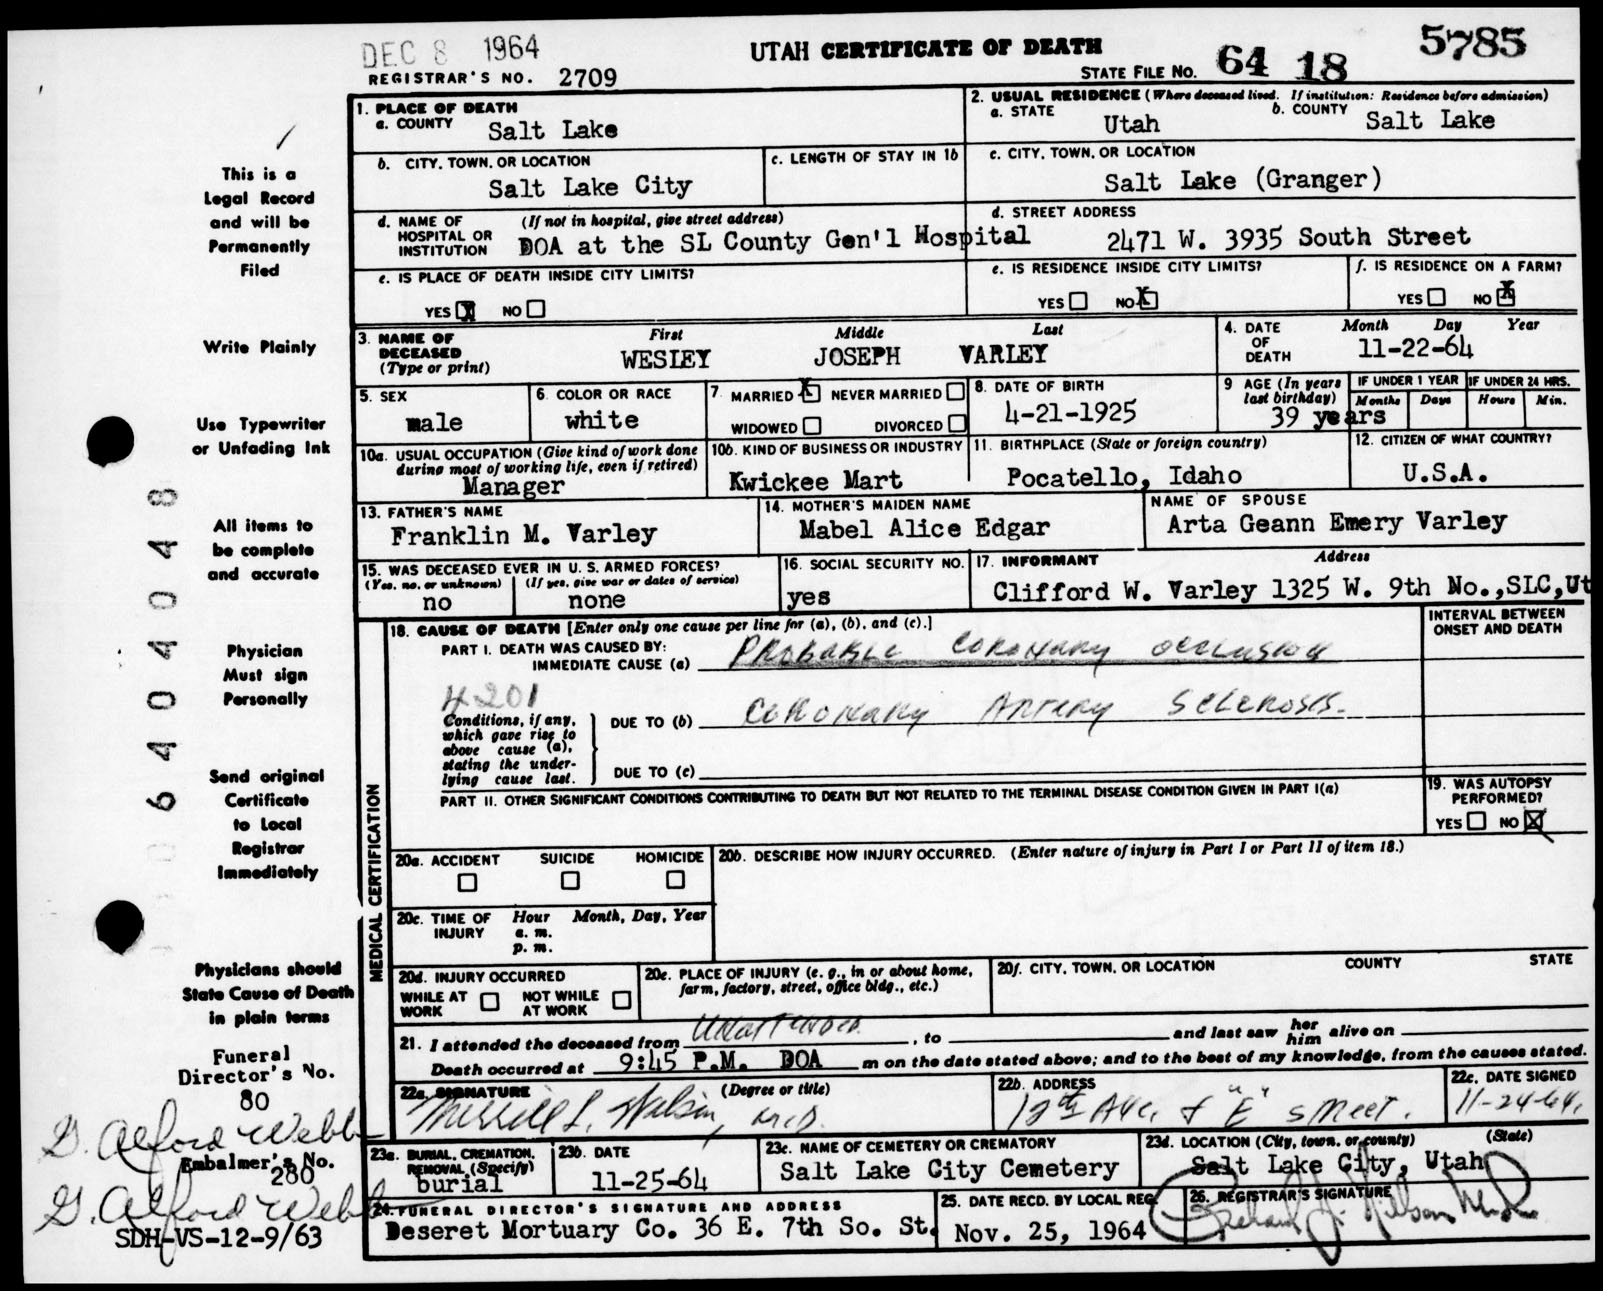 DEC 8 1964
UTAH CERTIFICATE OF DEATH
5785
REGISTRAR'S NO. 2709
STATE FILE NO. 64 18
1. PLACE OF DEATH
a. COUNTY Salt Lake
2. USUAL RESIDENCE (Where deceased lived. If institution: Residence before admission)
a. STATE Utah b. COUNTY Salt Lake
b. CITY, TOWN, OR LOCATION
Salt Lake City
c. LENGTH OF STAY IN 1b
c. CITY, TOWN, OR LOCATION
Salt Lake (Granger)
d. NAME OF HOSPITAL OR INSTITUTION (If not in hospital, give street address)
DOA at the SL County Gen'l Hospital
d. STREET ADDRESS
2471 W. 3935 South Street
e. IS PLACE OF DEATH INSIDE CITY LIMITS?
YES X NO
e. IS RESIDENCE INSIDE CITY LIMITS?
YES NO X
f. IS RESIDENCE ON A FARM?
YES NO X
3. NAME OF DECEASED (Type or print)
First Middle Last
WESLEY JOSEPH VARLEY
4. DATE OF DEATH
Month Day Year
11-22-64
5. SEX
male
6. COLOR OR RACE
white
7. MARRIED X NEVER MARRIED
WIDOWED DIVORCED
8. DATE OF BIRTH
4-21-1925
9 AGE (In years last birthday)
39 years
IF UNDER 1 YEAR
Months Days
IF UNDER 24 HRS.
Hours Min.
10a. USUAL OCCUPATION (Give kind of work done during most of working life, even if retired)
Manager
10b. KIND OF BUSINESS OR INDUSTRY
Kwickee Mart
11. BIRTHPLACE (State or foreign country)
Pocatello, Idaho
12. CITIZEN OF WHAT COUNTRY?
U.S.A.
13. FATHER'S NAME
Franklin M. Varley
14. MOTHER'S MAIDEN NAME
Mabel Alice Edgar
NAME OF SPOUSE
Arta Geann Emery Varley
15. WAS DECEASED EVER IN U. S. ARMED FORCES?
(Yes, no, or unknown) (If yes, give war or dates of service)
no none
16. SOCIAL SECURITY NO.
yes
17. INFORMANT Address
Clifford W. Varley 1325 W. 9th No.,SLC,Ut
MEDICAL CERTIFICATION
18. CAUSE OF DEATH [Enter only one cause per line for (a), (b), and (c).]
INTERVAL BETWEEN ONSET AND DEATH
PART I. DEATH WAS CAUSED BY:
IMMEDIATE CAUSE (a) PROBABLE CORONARY OCCLUSION
4201
Conditions, if any, which gave rise to above cause (a), stating the underlying cause last.
DUE TO (b) CORONARY ARTERY SCLEROSIS.
DUE TO (c)
PART II. OTHER SIGNIFICANT CONDITIONS CONTRIBUTING TO DEATH BUT NOT RELATED TO THE TERMINAL DISEASE CONDITION GIVEN IN PART I(a)
19. WAS AUTOPSY PERFORMED?
YES NO X
20a. ACCIDENT SUICIDE HOMICIDE
20b. DESCRIBE HOW INJURY OCCURRED. (Enter nature of injury in Part I or Part II of item 18.)
20c. TIME OF INJURY Hour Month, Day, Year
a. m.
p. m.
20d. INJURY OCCURRED
WHILE AT WORK NOT WHILE AT WORK
20e. PLACE OF INJURY (e. g., in or about home, farm, factory, street, office bldg., etc.)
20f. CITY, TOWN, OR LOCATION COUNTY STATE
21. I attended the deceased from Unattended , to and last saw her him alive on
Death occurred at 9:45 P.M. DOA m on the date stated above; and to the best of my knowledge, from the causes stated.
22a. SIGNATURE (Degree or title)
Merrill L. Wilson, M.D.
22b. ADDRESS
12th Ave. & "E" Street.
22c. DATE SIGNED
11-24-64.
23a. BURIAL, CREMATION, REMOVAL (Specify)
burial
23b. DATE
11-25-64
23c. NAME OF CEMETERY OR CREMATORY
Salt Lake City Cemetery
23d. LOCATION (City, town, or county) (State)
Salt Lake City, Utah
24. FUNERAL DIRECTOR'S SIGNATURE AND ADDRESS
Deseret Mortuary Co. 36 E. 7th So. St.
25. DATE RECD. BY LOCAL REG.
Nov. 25, 1964
26. REGISTRAR'S SIGNATURE
This is a
Legal Record
and will be
Permanently
Filed
Write Plainly
Use Typewriter
or Unfading Ink
All items to
be complete
and accurate
Physician
Must sign
Personally
Send original
Certificate
to Local
Registrar
Immediately
Physicians should
State Cause of Death
in plain terms
Funeral
Director's No.
80
G. Alford Webb
Embalmer's No.
280
G. Alford Webb
SDH-VS-12-9/63
6404048